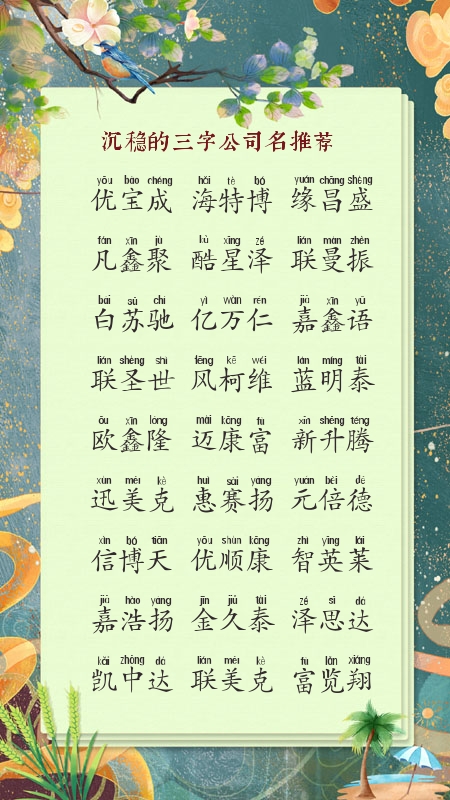 沉稳的三字公司名推荐
yōu bǎo chéng hǎi tè bó yuán chāng shèng
优宝成 海特博 缘昌盛
fán xīn jù kù xīng zé lián màn zhèn
凡鑫聚 酷星泽 联曼振
bái sū chí yì wàn rén jiā xīn yǔ
白苏驰 亿万仁 嘉鑫语
lián shèng shì fēng kē wéi lán míng tài
联圣世 风柯维 蓝明泰
ōu xīn lóng mài kāng fù xīn shēng téng
欧鑫隆 迈康富 新升腾
xùn měi kè huì sài yáng yuán bèi dé
迅美克 惠赛扬 元倍德
xìn bó tiān yōu shùn kāng zhì yīng lái
信博天 优顺康 智英莱
jiā hào yáng jīn jiǔ tài zé sī dá
嘉浩扬 金久泰 泽思达
kǎi zhōng dá lián měi kè fù lǎn xiáng
凯中达 联美克 富览翔